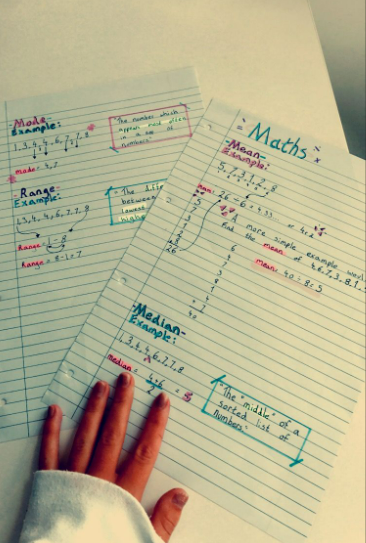 -Mode-
Example:
1,3,4,4,6,7,7,8
mode = 4,7
"The number which
appears most often
in a set of
numbers"
-Range-
Example:
1,3,4,4,6,7,7,8
Range =
Range = 8-1=7
"The
between
lowest
Maths
-Mean-
Example:
5,7,3,1,2,8
mean: 26 ÷ 6 = 4.33
or
5
7
3
1
2
+8
26
more simple example would
find the mean of
4,6,7,3,8,1,
6
+
40
mean: 40 ÷ 8 = 5
-Median-
Example:
1,3,4,4,6,7,7,8
median = 4+6
2
= 5
"The "middle" of a
sorted list of
numbers"